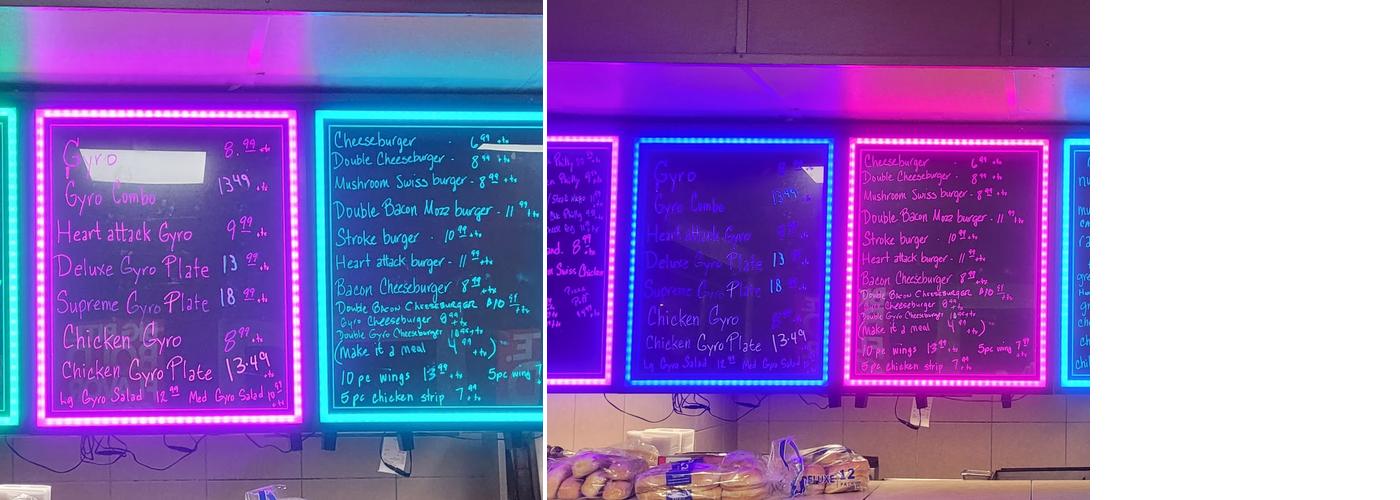 Gyro 8.99 +tx
Gyro Combo 13.49 +tx
Heart attack Gyro 9.99 +tx
Deluxe Gyro Plate 13.99 +tx
Supreme Gyro Plate 18.99 +tx
Chicken Gyro 8.99 +tx
Chicken Gyro Plate 13.49
Lg Gyro Salad 12.99 Med Gyro Salad
Cheeseburger - 6.99 +tx
Double Cheeseburger - 8.99 +tx
Mushroom Swiss burger - 8.99 +tx
Double Bacon Mozz burger - 11.99 +tx
Stroke burger - 10.99 +tx
Heart attack burger - 11.99 +tx
Bacon Cheeseburger 8.99 +tx
Double Bacon Cheeseburger $10.99 +tx
Gyro Cheeseburger 8.99 +tx
Double Gyro Cheeseburger 10.99 +tx
(Make it a meal 4.99 +tx)
10 pc wings 13.99 +tx 5pc wing 7
5 pc chicken strip 7.99 +tx
Philly
Philly
Philly
8.99
Swiss Chicken
Gyro
Gyro Combo 13.49
Heart attack Gyro
Deluxe Gyro Plate 13
Supreme Gyro Plate 18
Chicken Gyro
Chicken Gyro Plate 13.49
Lg Gyro Salad 12.99 Med Gyro Salad
Cheeseburger - 6.99 +tx
Double Cheeseburger - 8.99 +tx
Mushroom Swiss burger - 8.99 +tx
Double Bacon Mozz burger - 11.99 +tx
Stroke burger - 10.99 +tx
Heart attack burger - 11.99 +tx
Bacon Cheeseburger 8.99 +tx
Double Bacon Cheeseburger $10.99 +tx
Gyro Cheeseburger 8.99 +tx
Double Gyro Cheeseburger 10.99 +tx
(Make it a meal 4.99 +tx)
10 pc wings 13.99 +tx 5pc wing 7.99
5 pc chicken strip 7.99 +tx
12